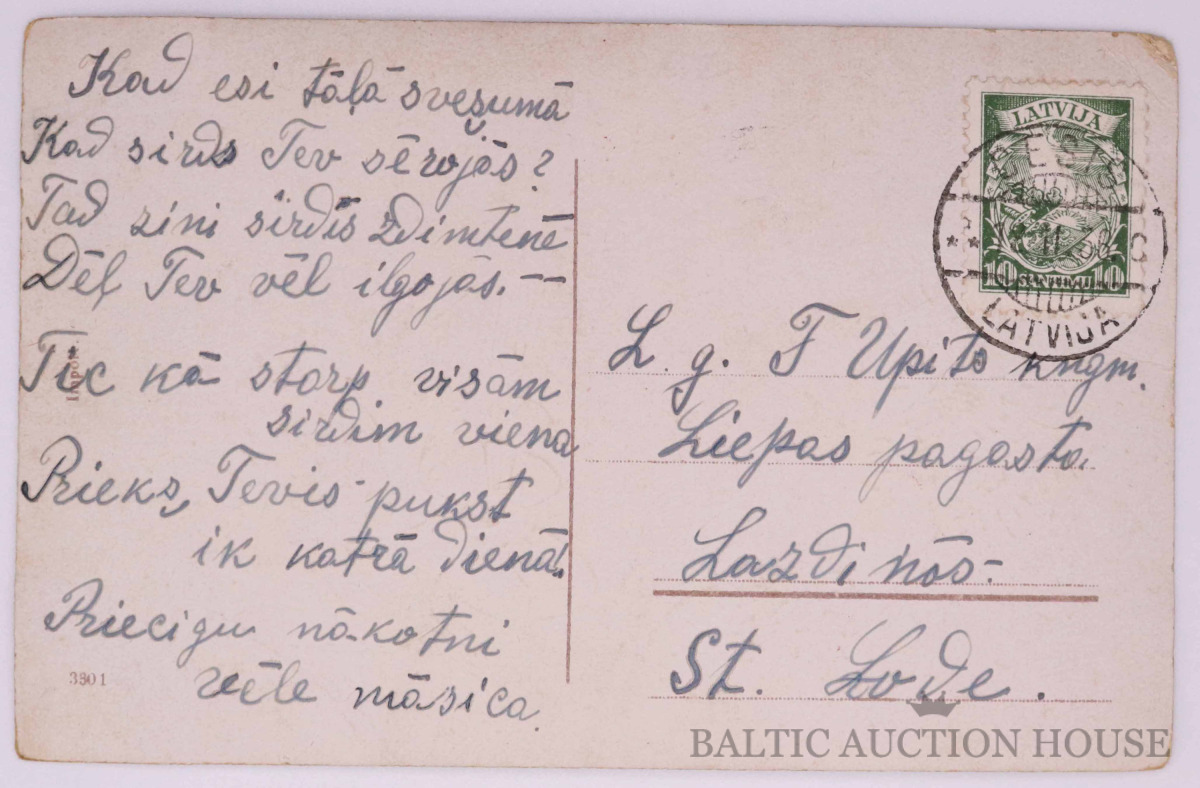 Kad esi tāļā svešumā
Kad sirds Tev sērojās?
Tad zini sirdis dzimtenē
Dēļ Tev vēl ilgojās. —
Tic kā starp visām
sirdīm viena
Prieks Tevis pukst
ik katrā dienā.
Priecigu nākotni
vēle māsica.
3301
Import.
LATVIJA
10 SANTIMU 10
CESIS
LATVIJA
L. g. F Upits kngm.
Liepas pagasta.
Lazdinōs.
St. Lode.
BALTIC AUCTION HOUSE